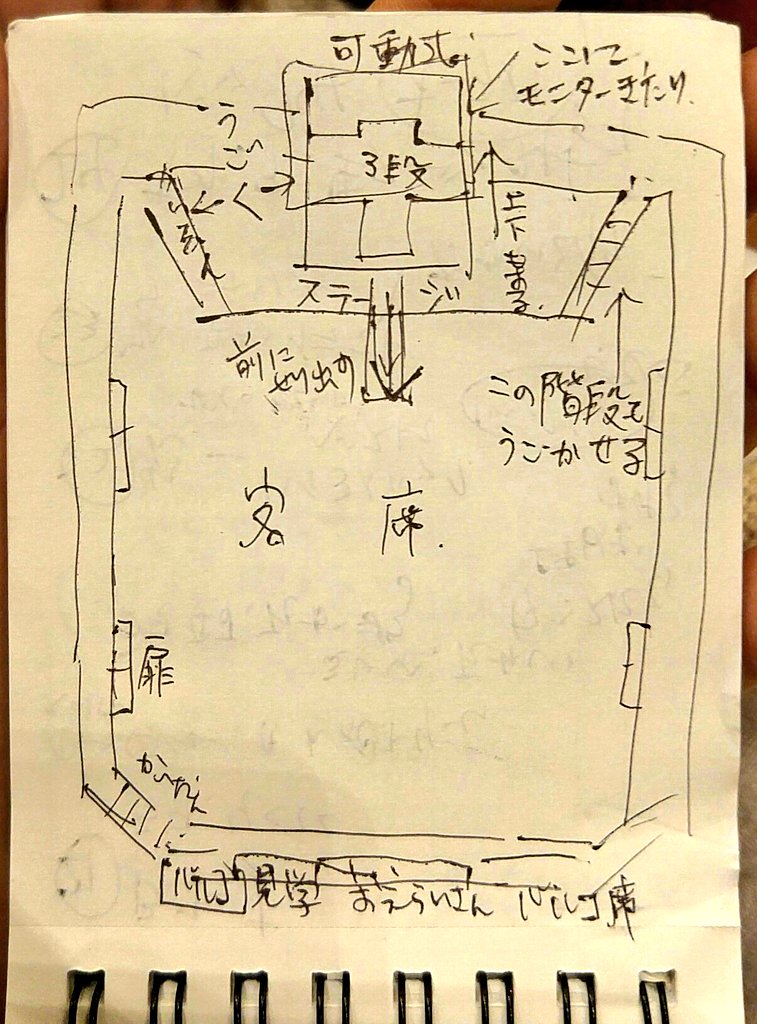 可動式
ここにて
モニターきたり
うごく
3段
かいだん
上下せまる
ステージ
前に
せり出す
この階段も
うごかせる
客席
扉
かいだん
バルコ
見学
おえらいさん
バルコ席